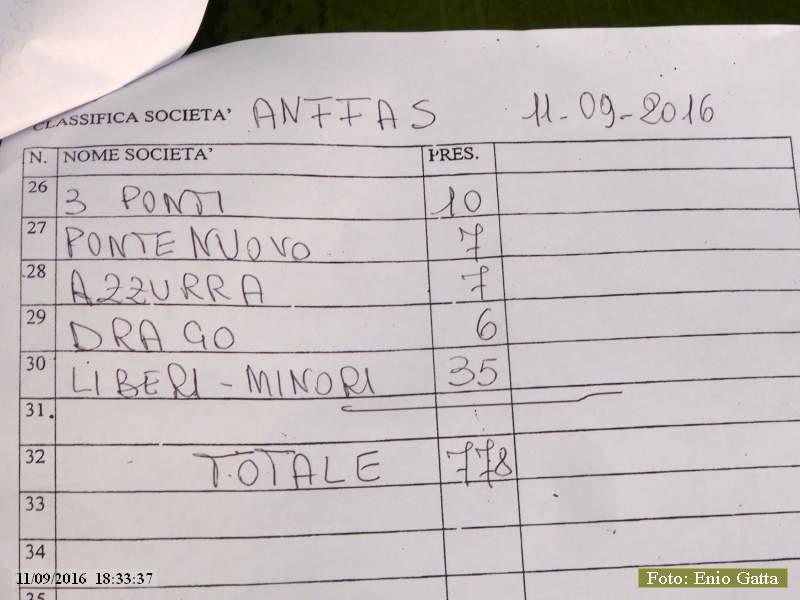 CLASSIFICA SOCIETA' ANFFAS 11-09-2016
N. NOME SOCIETA' PRES.
26 3 PONTI 10
27 PONTE NUOVO 7
28 AZZURRA 7
29 DRAGO 6
30 LIBERI-MINORI 35
31.
32 TOTALE 778
33
34
35
11/09/2016 18:33:37
Foto: Enio Gatta